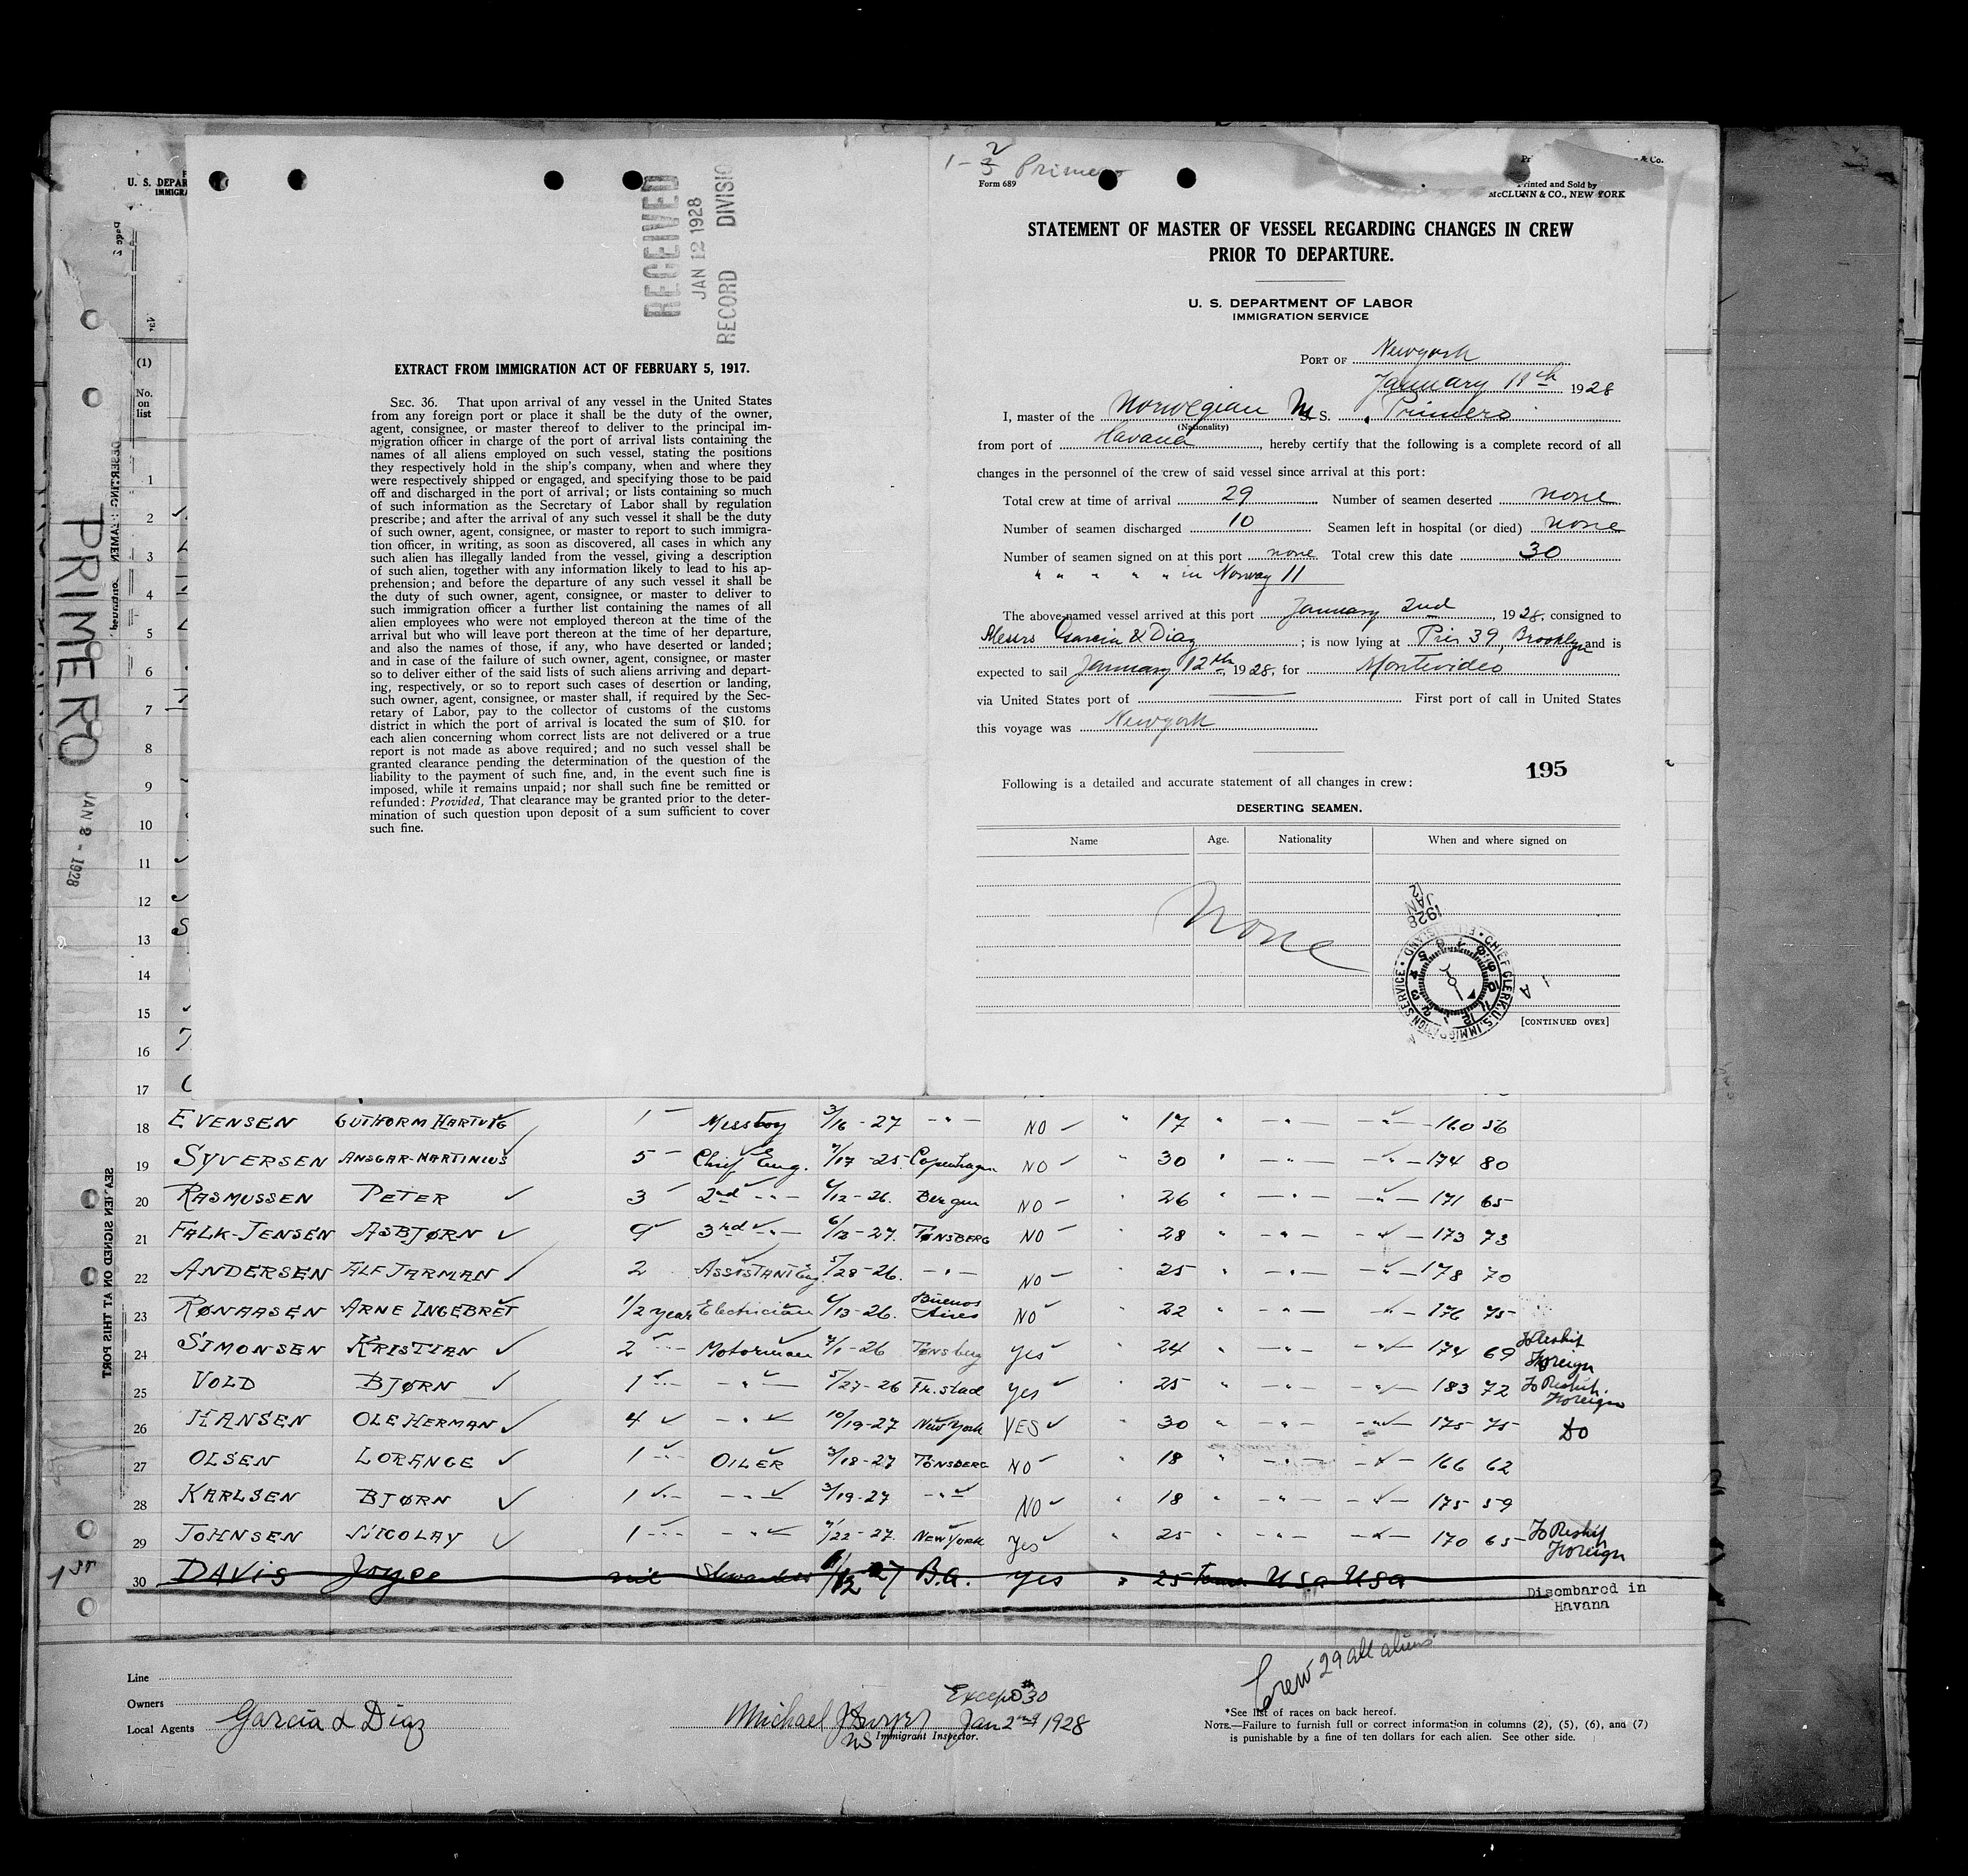 U. S. DEPAR
IMMIGRA
(1)
No.
on
list
1
2
3
4
5
6
7
8
9
10
11
12
13
14
15
16
17
PRIMERO
JAN 2 - 1928
DESERTING SEAMEN
SEAMEN SIGNED ON AT THIS PORT
RECEIVED
JAN 12 1928
RECORD DIVISIO
EXTRACT FROM IMMIGRATION ACT OF FEBRUARY 5, 1917.
SEC. 36. That upon arrival of any vessel in the United States
from any foreign port or place it shall be the duty of the owner,
agent, consignee, or master thereof to deliver to the principal im-
migration officer in charge of the port of arrival lists containing the
names of all aliens employed on such vessel, stating the positions
they respectively hold in the ship's company, when and where they
were respectively shipped or engaged, and specifying those to be paid
off and discharged in the port of arrival; or lists containing so much
of such information as the Secretary of Labor shall by regulation
prescribe; and after the arrival of any such vessel it shall be the duty
of such owner, agent, consignee, or master to report to such immigra-
tion officer, in writing, as soon as discovered, all cases in which any
such alien has illegally landed from the vessel, giving a description
of such alien, together with any information likely to lead to his ap-
prehension; and before the departure of any such vessel it shall be
the duty of such owner, agent, consignee, or master to deliver to
such immigration officer a further list containing the names of all
alien employees who were not employed thereon at the time of the
arrival but who will leave port thereon at the time of her departure,
and also the names of those, if any, who have deserted or landed;
and in case of the failure of such owner, agent, consignee, or master
so to deliver either of the said lists of such aliens arriving and depart-
ing, respectively, or so to report such cases of desertion or landing,
such owner, agent, consignee, or master shall, if required by the Sec-
retary of Labor, pay to the collector of customs of the customs
district in which the port of arrival is located the sum of $10. for
each alien concerning whom correct lists are not delivered or a true
report is not made as above required; and no such vessel shall be
granted clearance pending the determination of the question of the
liability to the payment of such fine, and, in the event such fine is
imposed, while it remains unpaid; nor shall such fine be remitted or
refunded: Provided, That clearance may be granted prior to the deter-
mination of such question upon deposit of a sum sufficient to cover
such fine.
Primero
Form 689
& Co.
Printed and Sold by
McCLUNN & CO., NEW YORK
STATEMENT OF MASTER OF VESSEL REGARDING CHANGES IN CREW
PRIOR TO DEPARTURE.
U. S. DEPARTMENT OF LABOR
IMMIGRATION SERVICE
PORT OF Newyork
January 11th 1928
I, master of the Norwegian M. S. Primero
(Nationality)
from port of Havana, hereby certify that the following is a complete record of all
changes in the personnel of the crew of said vessel since arrival at this port:
Total crew at time of arrival 29 Number of seamen deserted none
Number of seamen discharged 10 Seamen left in hospital (or died) none
Number of seamen signed on at this port none Total crew this date 30
" " " " " in Norway 11
The above-named vessel arrived at this port January 2nd, 1928, consigned to
Messrs Garcia & Diaz; is now lying at Pier 39, Brooklyn and is
expected to sail January 12th, 1928, for Montevideo
via United States port of First port of call in United States
this voyage was Newyork
195
Following is a detailed and accurate statement of all changes in crew:
DESERTING SEAMEN.
Name Age. Nationality When and where signed on
None
1928 JAN 12
CHIEF CLERK, U.S. IMMIGRATION SERVICE
[CONTINUED OVER]
18 EVENSEN GUTHORM HARTVIG 1 Messboy 3/16-27 -"- NO " 17 " -"- -"- 160 56
19 SYVERSEN ANSGAR-MARTINIUS 5 Chief Eng. 7/17-25 Copenhagen NO " 30 " -"- 174 80
20 RASMUSSEN PETER 3 2nd -"- 6/12-26. Bergen NO " 26 " -"- 171 65
21 FALK-JENSEN ASBJØRN 9 3rd -"- 6/13-27. TØNSBERG NO 28 " -"- 173 73
22 ANDERSEN ALF JARMAN 2 ASSISTANT Eng. 5/28-26. -"- NO 25 " -"- 178 70
23 RØNAASEN ARNE INGEBRET 1/2 year Electrician 6/13-26. Buenos Aires NO 22 " -"- 176 75
24 SIMONSEN KRISTIAN 2 Motorman 7/1-26 Tønsberg Yes 24 " -"- 174 69 To Reship Foreign
25 VOLD BJØRN 1 -"- 5/27-26 Fr.stad Yes 25 " -"- 183 72 To Reship. Foreign
26 HANSEN OLE HERMAN 4 -"- 10/19-27 New York YES " 30 " -"- 175 75 DO
27 OLSEN LORANGE 1 OILER 3/18-27 TØNSBERG NO " 18 " -"- 166 62
28 KARLSEN BJØRN 1 -"- 3/19-27 -"- NO " 18 " -"- 175 59
29 JOHNSEN NICOLAY 1 -"- 7/22-27. NEW YORK Yes 25 " -"- 170 65 To Reship Foreign
1st 30 DAVIS Joyce nil Stwardess B.A. Yes " 25 U.S.A USA Disembarced in
Havana
Crew 29 all aliens
Line
Owners
Local Agents Garcia & Diaz
Except #30
Michael J Dwyer Jan 2nd 1928
Immigrant Inspector.
*See list of races on back hereof.
NOTE.—Failure to furnish full or correct information in columns (2), (5), (6), and (7)
is punishable by a fine of ten dollars for each alien. See other side.